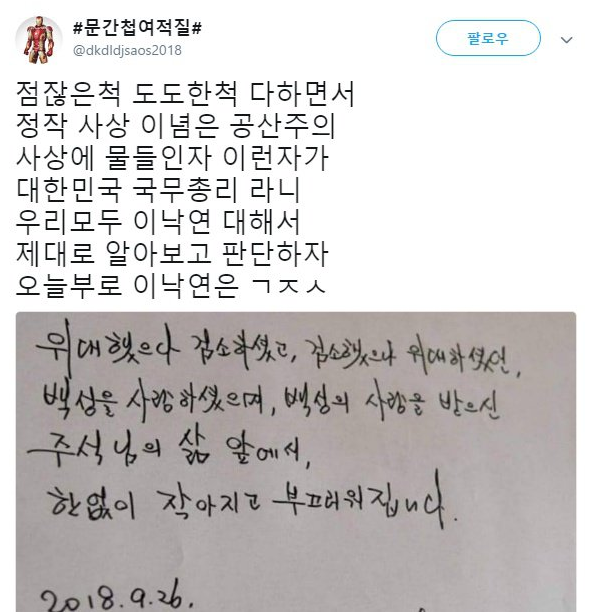 #문간첩여적질#
@dkdldjsaos2018
팔로우
점잖은척 도도한척 다하면서
정작 사상 이념은 공산주의
사상에 물들인자 이런자가
대한민국 국무총리 라니
우리모두 이낙연 대해서
제대로 알아보고 판단하자
오늘부로 이낙연은 ㄱㅈㅅ
위대했으나 검소하셨고, 검소했으나 위대하셨던,
백성을 사랑하셨으며, 백성의 사랑을 받으신
주석님의 삶 앞에서,
한없이 작아지고 부끄러워집니다.
2018.9.26.